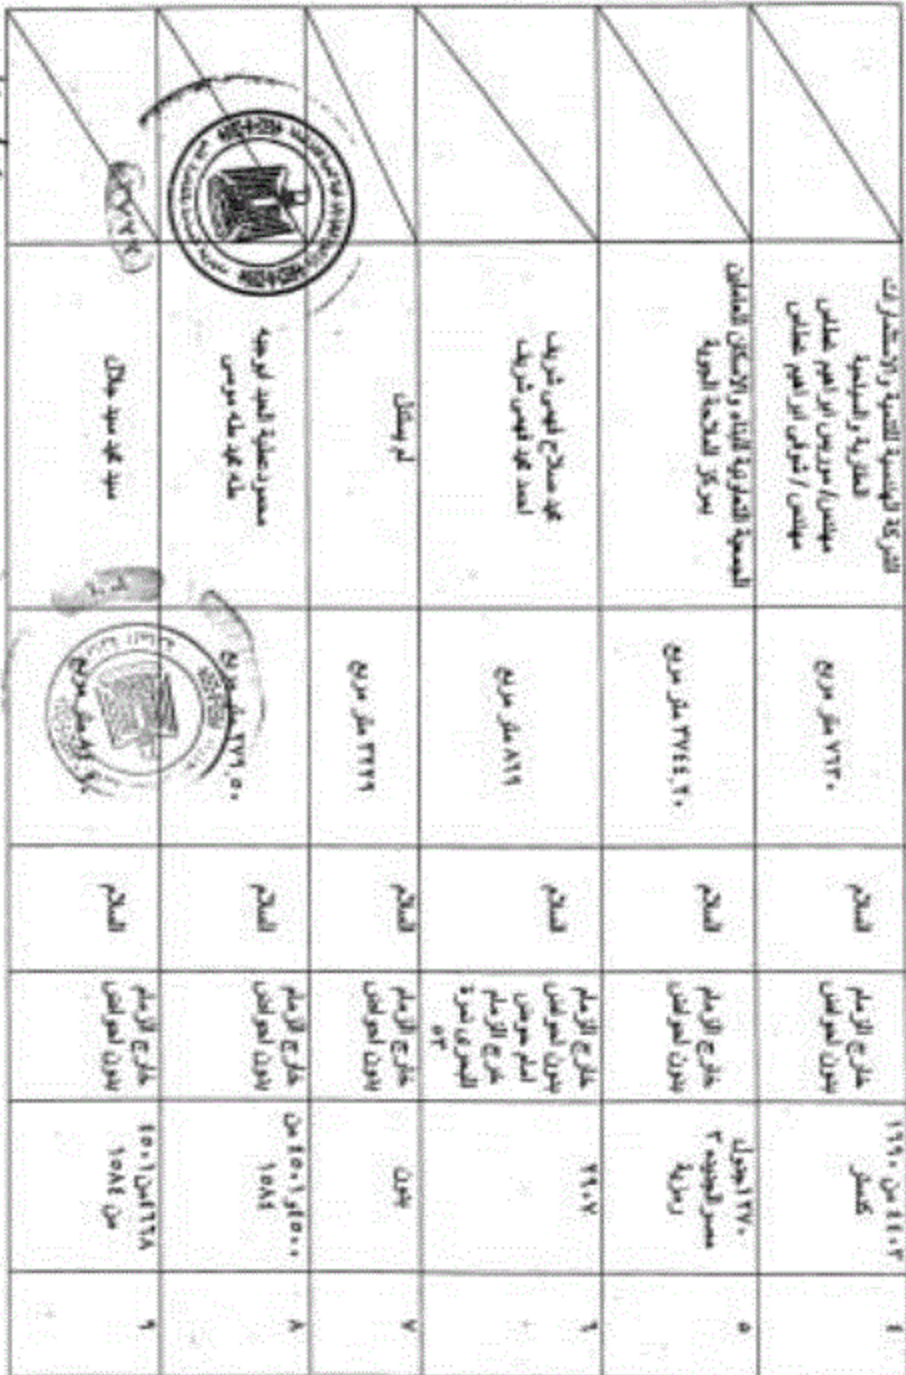 ٤
٤٤٠٣ من ١٩٩٠
كنستر
خارج الزمام
بدون احواض
السلام
٧٦٣٠ متر مربع
الشركة الهندسية للتنمية والاستشارات
العقارية والسياحية
مهندس / موريس ابراهيم غطاس
مهندس / شوقى ابراهيم غطاس
٥
١٢٧٠ جدول
مصر الجديده ٣
رمزية
خارج الزمام
بدون احواض
السلام
٣٧٤٤,٢٠ متر مربع
الجمعية التعاونية للبناء والاسكان للعاملين
بمركز الملاحة الجوية
٦
٢٩٠٧
خارج الزمام
بدون احواض
امام حوض
خارج الزمام
البحرى نمرة
٥٣
السلام
٨٦٦ متر مربع
محمد صلاح فهمى شريف
احمد محمد فهمى شريف
٧
بدون
خارج الزمام
بدون احواض
السلام
٣٢٢٩ متر مربع
لم يستدل
٨
٤٥٠٠ و ٤٥٠١ من
١٥٨٤
خارج الزمام
بدون احواض
السلام
٢٧٦,٥٠ متر مربع
محمود عطية السيد ابو حبه
طه محمد طه موسى
٩
٤٦٦٨ من ٤٥٠١
من ١٥٨٤
خارج الزمام
بدون احواض
السلام
متر مربع
سيد محمد سيد جلال